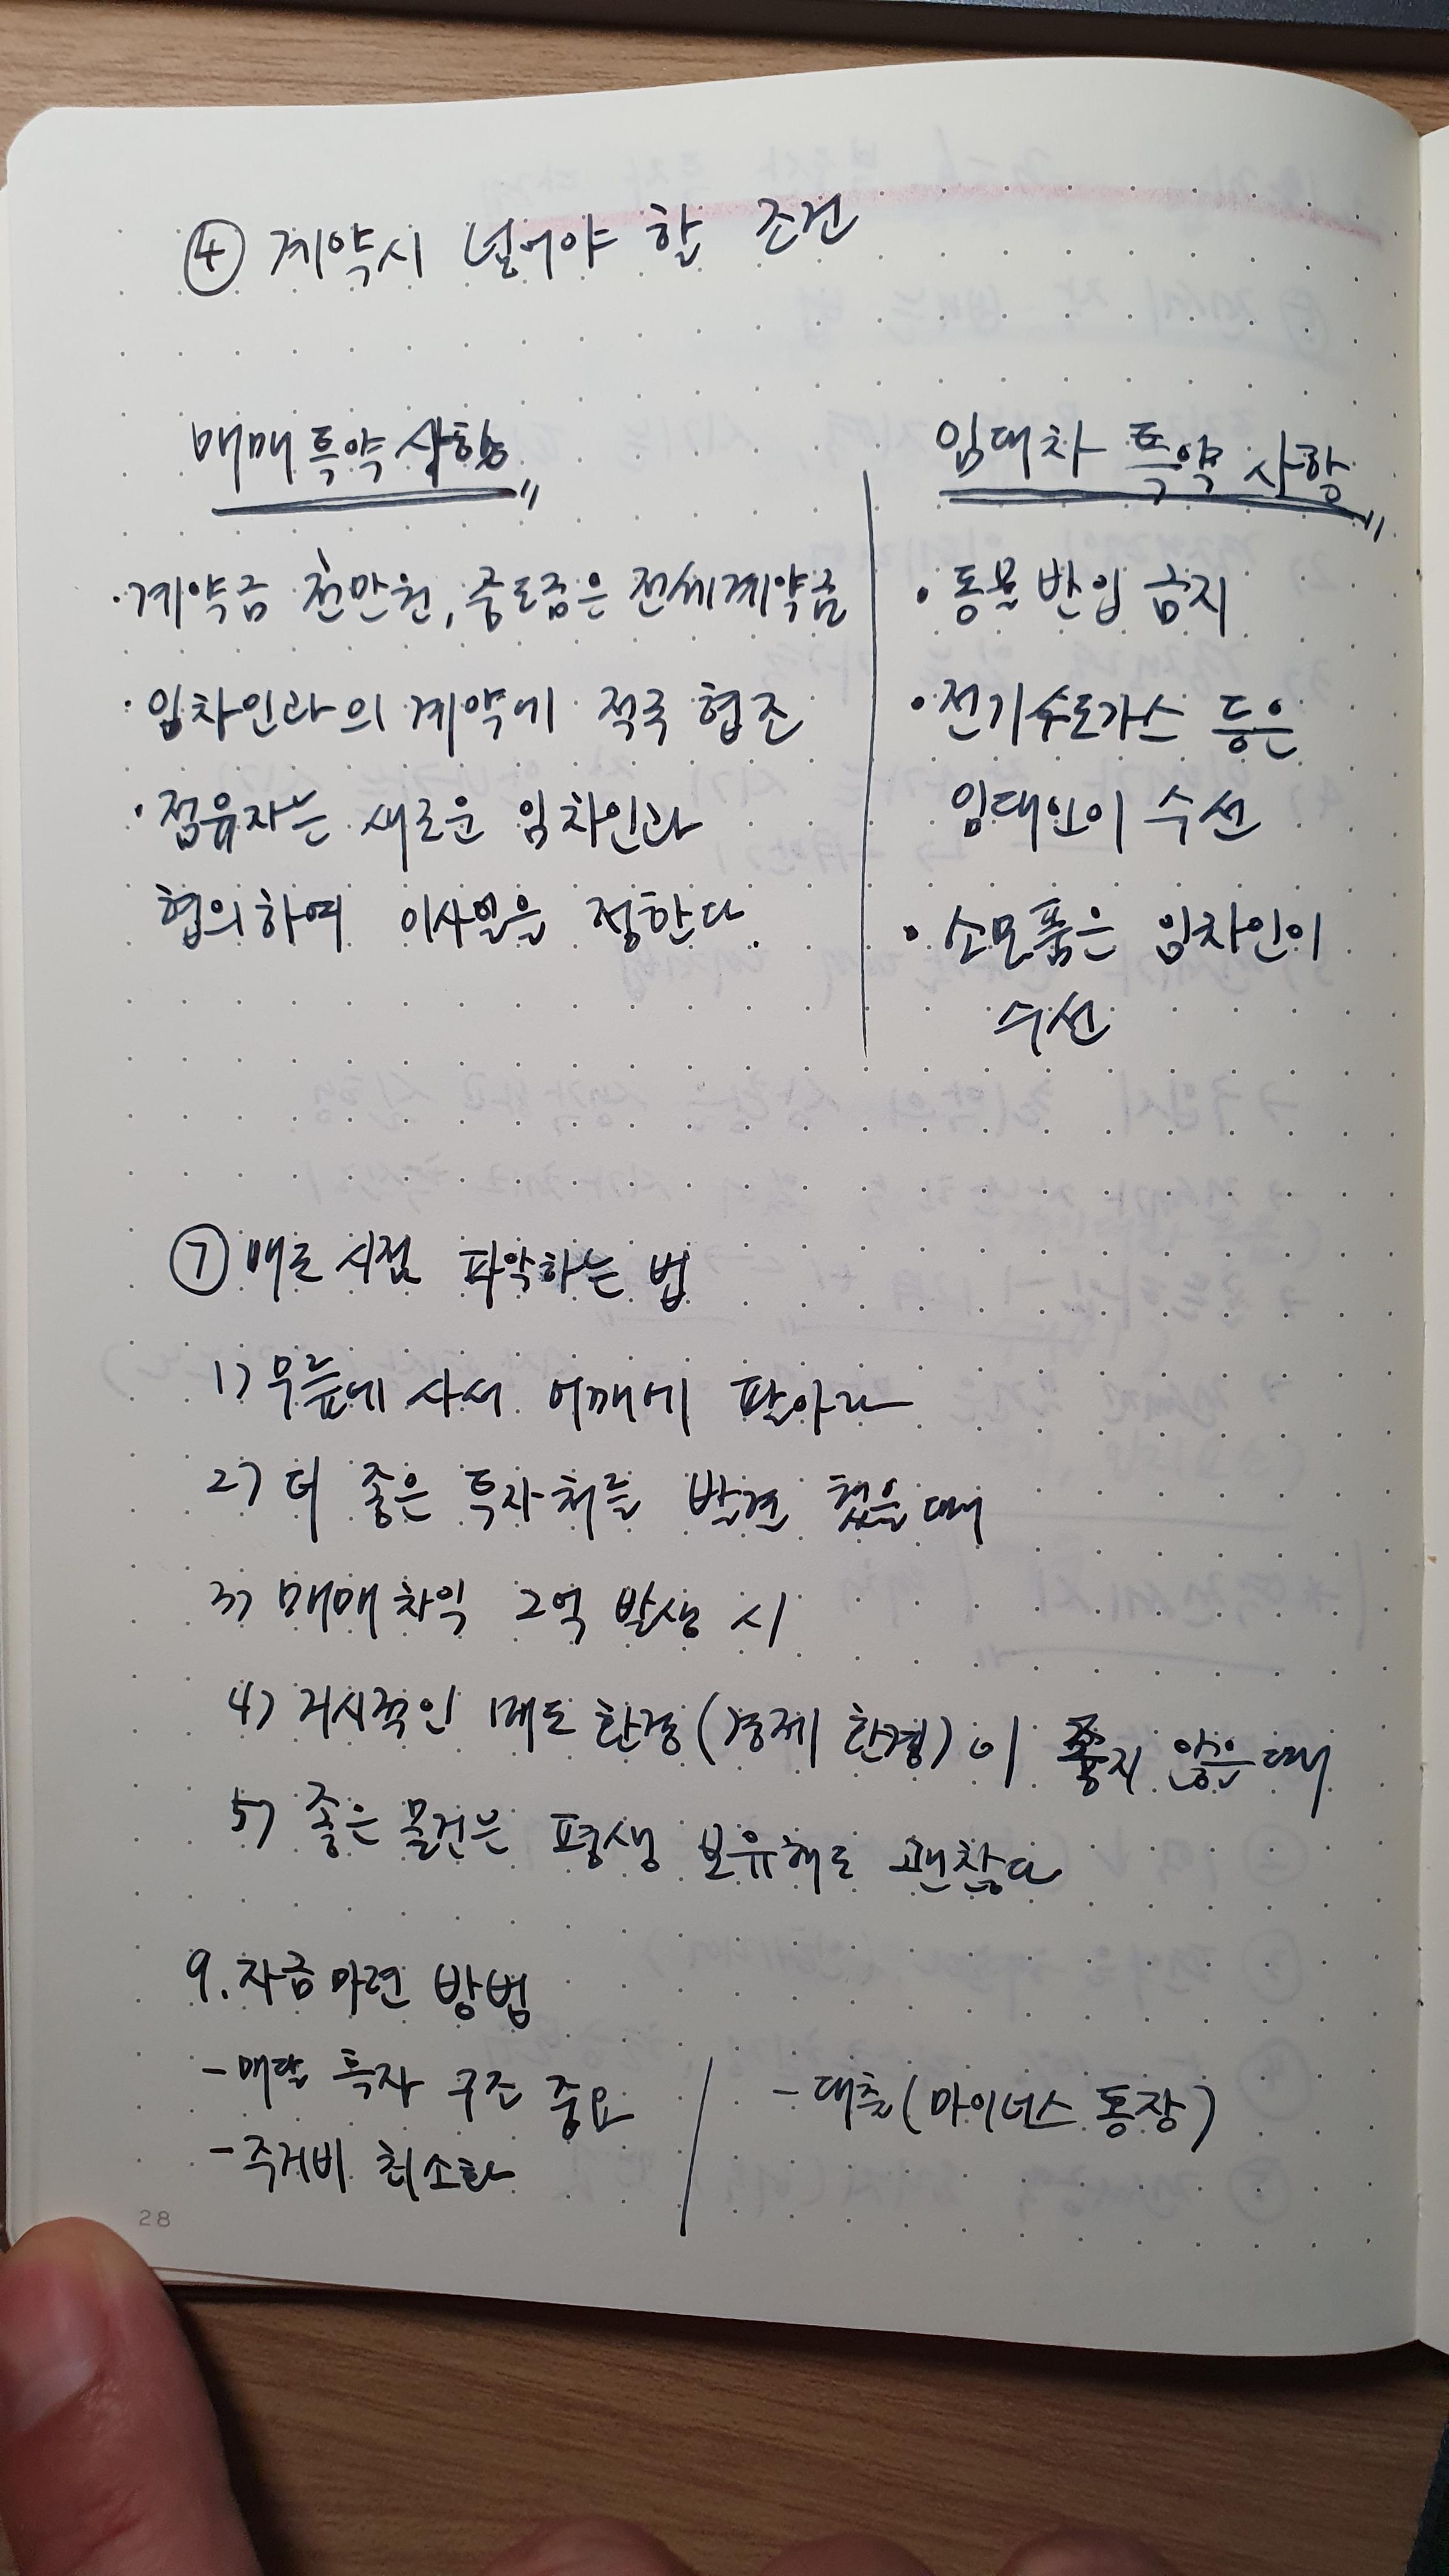 ④ 계약시 넣어야 할 조건
매매 특약 사항〃
·계약금 천만원, 중도금은 전세계약금
·임차인과의 계약에 적극 협조
·점유자는 새로운 임차인과
협의하여 이사일을 정한다.
임대차 특약 사항〃
·동물 반입 금지
·전기수도가스 등은
임대인이 수선
·소모품은 임차인이
수선
⑦ 매도 시점 파악하는 법
1) 무릎에 사서 어깨에 팔아라
2) 더 좋은 투자처를 발견 했을 때
3) 매매 차익 2억 발생 시
4) 거시적인 매도 환경(경제 환경)이 좋지 않은 때
5) 좋은 물건은 평생 보유해도 괜찮다
9. 자금마련 방법
- 매달 투자 구조 중요
- 주거비 최소화
- 대출(마이너스 통장)
28